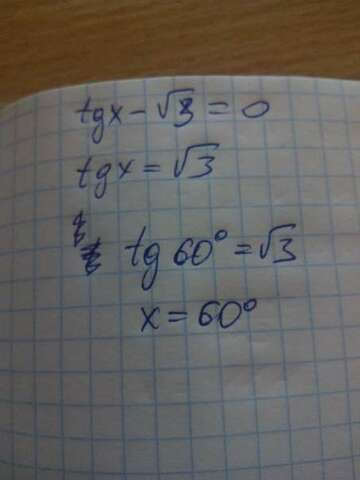 tgx - √3 = 0
tgx = √3
tg 60° = √3
x = 60°